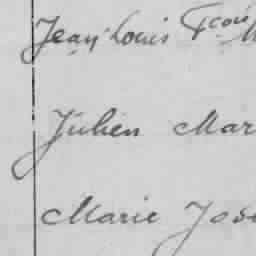 Jean Louis Fçois
Julien Mar
Marie Jos